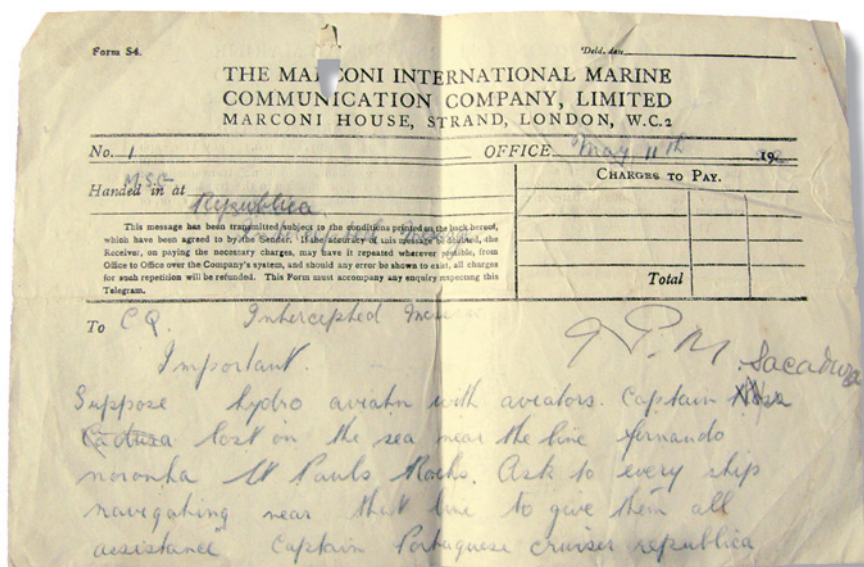 Form S4.
Deld. date
THE MARCONI INTERNATIONAL MARINE
COMMUNICATION COMPANY, LIMITED
MARCONI HOUSE, STRAND, LONDON, W.C.2
No. 1 OFFICE May 11th 19
Handed in at
Republica
CHARGES TO PAY.
This message has been transmitted subject to the conditions printed on the back hereof,
which have been agreed to by the Sender. If the accuracy of this message be doubted, the
Receiver, on paying the necessary charges, may have it repeated wherever possible, from
Office to Office over the Company's system, and should any error be shown to exist, all charges
for such repetition will be refunded. This Form must accompany any enquiry respecting this
Telegram.
Total
To CQ. Intercepted
Important.
Sacadura
Suppose hydro aviatn with aviators. Captain
lost on the sea near the line fernando
noronha St Pauls Rocks. Ask to every ship
navigating near that line to give them all
assistance" Captain Portuguese cruiser republica